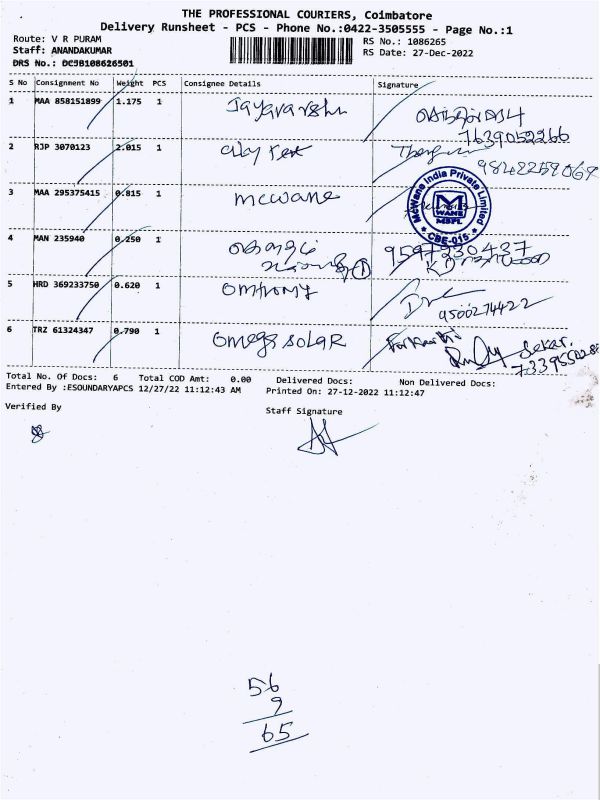 THE PROFESSIONAL COURIERS, Coimbatore
Delivery Runsheet - PCS - Phone No.:0422-3505555 - Page No.:1
Route: V R PURAM
RS No.: 1086265
Staff: ANANDAKUMAR
RS Date: 27-Dec-2022
DRS No.: DC5B108626501
S No Consignment No Weight PCS Consignee Details Signature
1 MAA 858151899 1.175 1
7639052266
2 RJP 3070123 2.015 1
3 MAA 295375415 0.815 1 mcwane
McWane India Private Limited
M
WANE
MSPL
CBE-015
4 MAN 235940 0.250 1
9597930437
5 HRD 369233750 0.620 1
9500274422
6 TRZ 61324347 0.790 1 omega solar
Sekar.
Total No. Of Docs: 6 Total COD Amt: 0.00 Delivered Docs: Non Delivered Docs:
Entered By :ESOUNDARYAPCS 12/27/22 11:12:43 AM Printed On: 27-12-2022 11:12:47
Verified By
Staff Signature
56
9
65